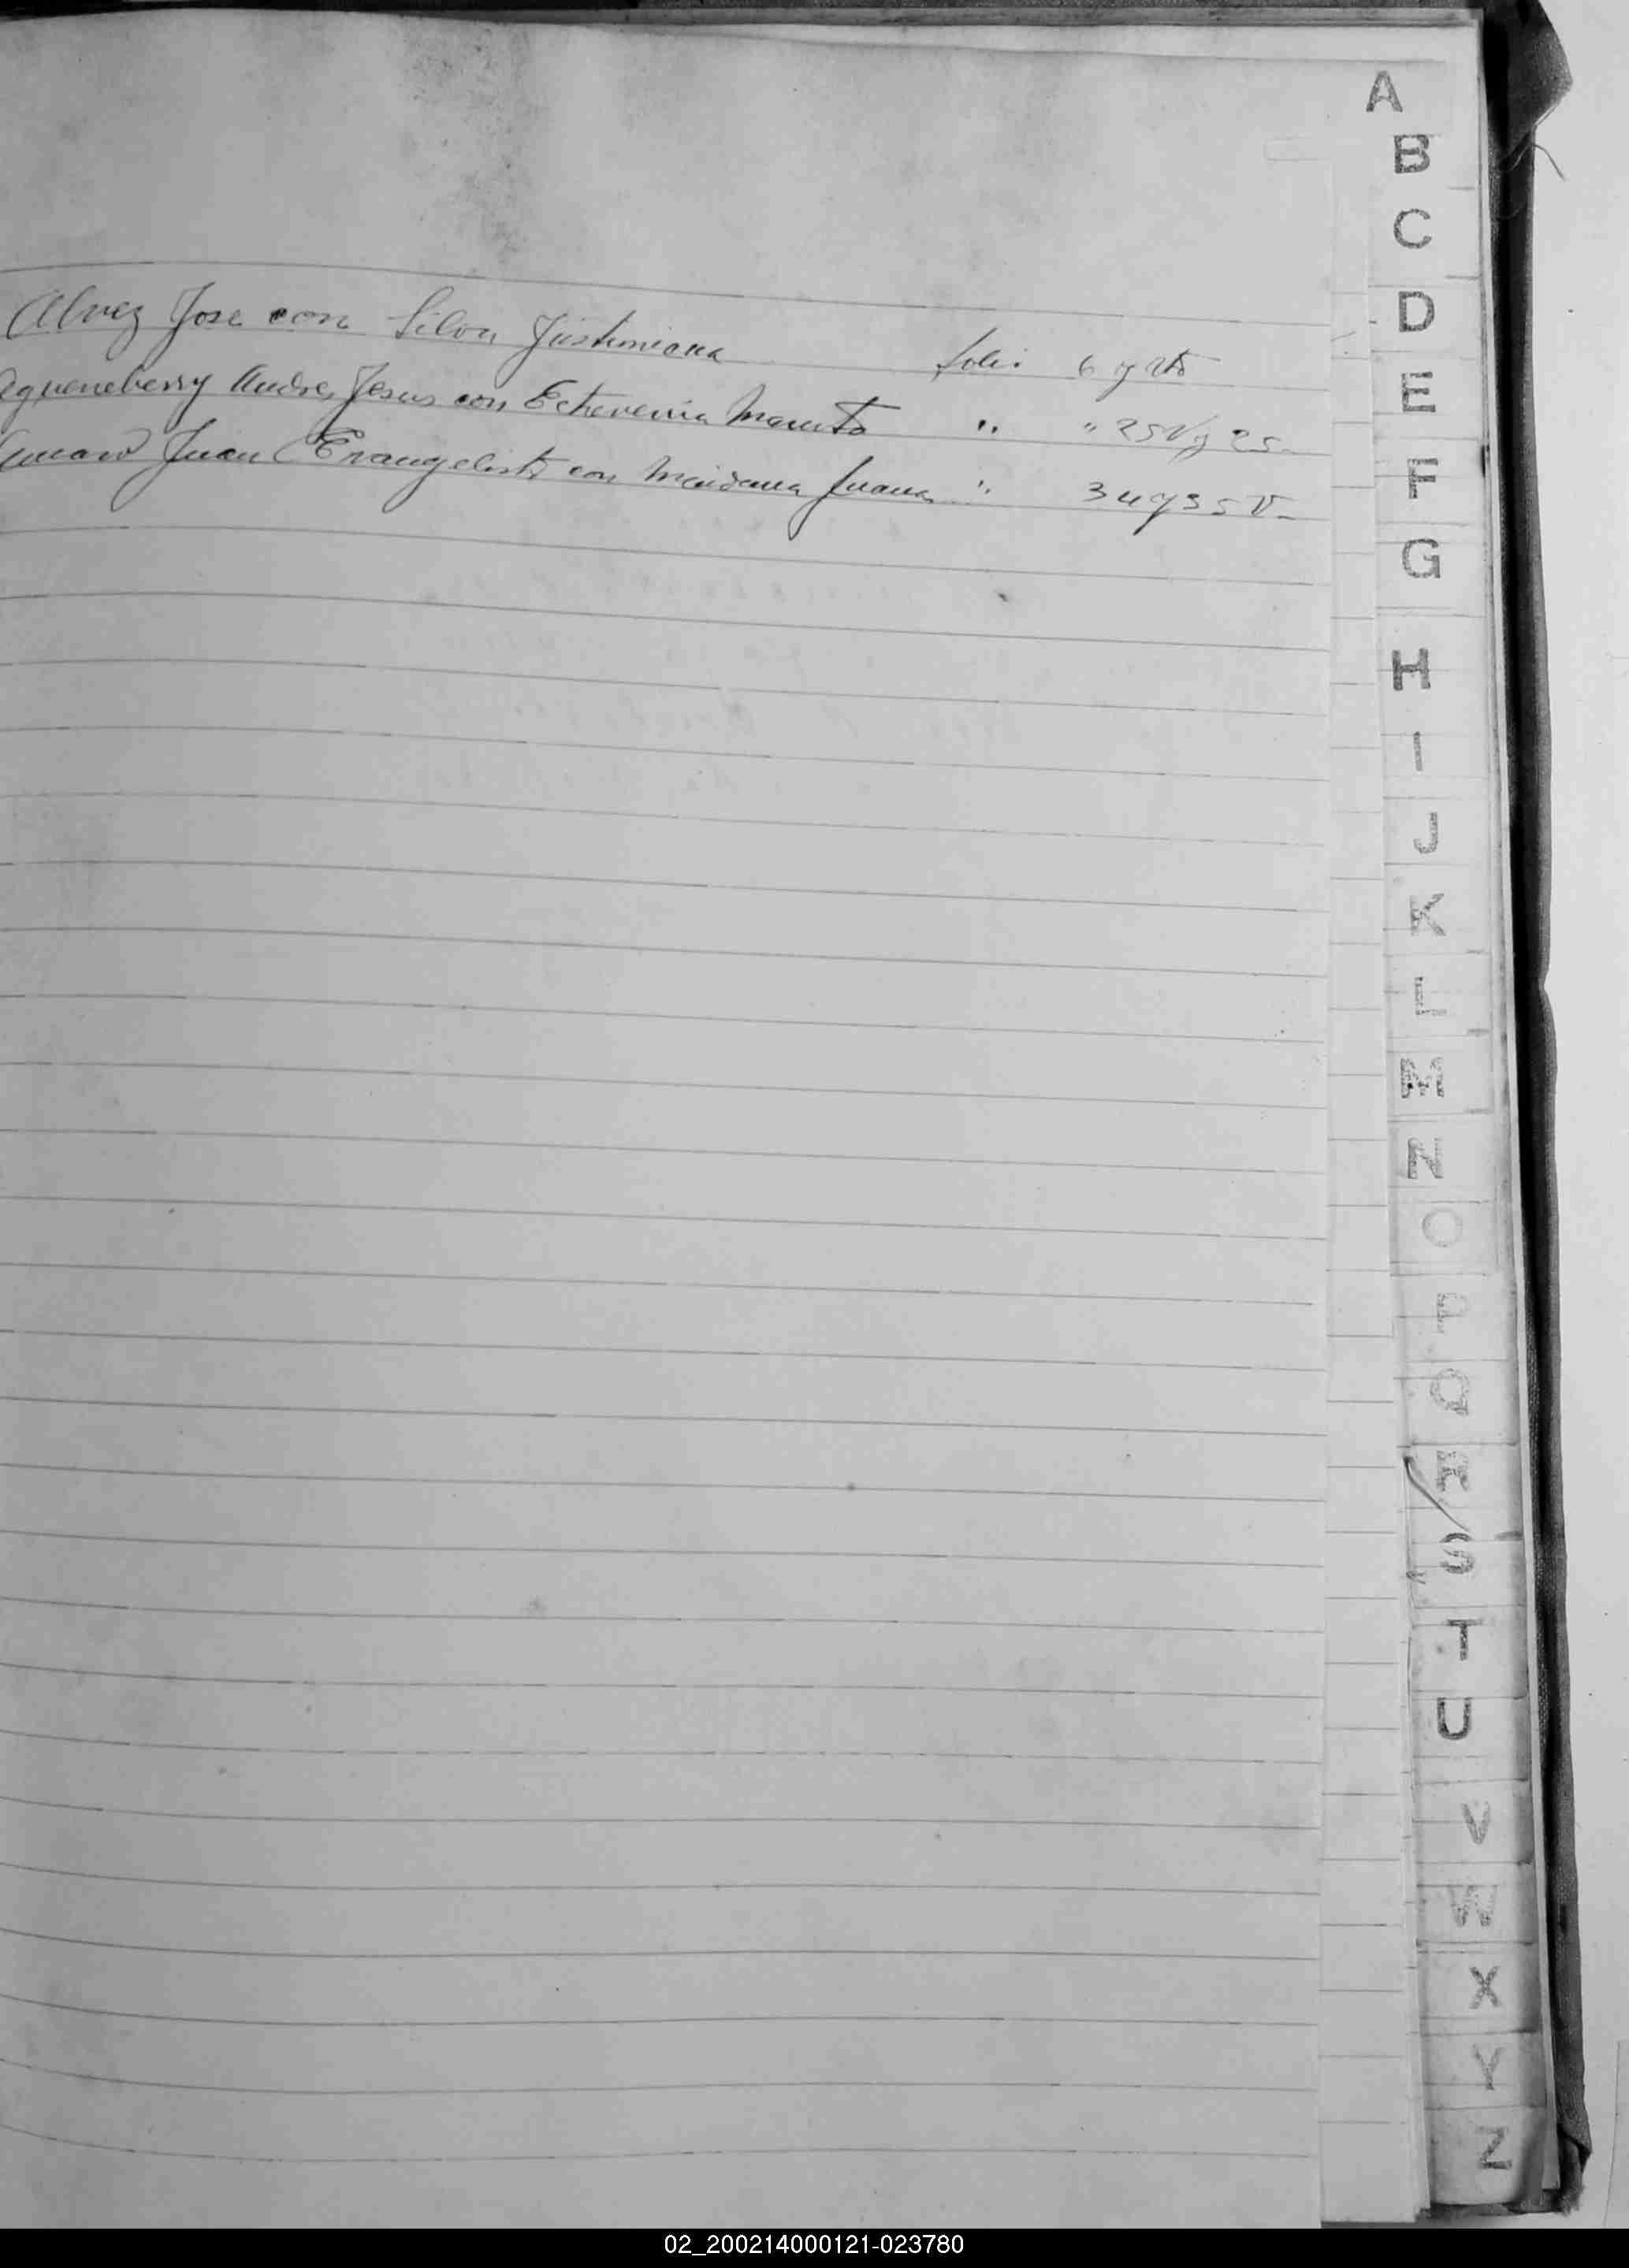 Alvez Jose con Silva Justiniana folio 6 y vto
Andres Jesus con Echeverria " " 25V y 25-
Amaro Juan Evangelista con Maidana Juana " 34 y 35 V-
A
B
C
D
E
F
G
H
I
J
K
L
M
N
O
P
Q
R
S
T
U
V
W
X
Y
Z
02_200214000121-023780